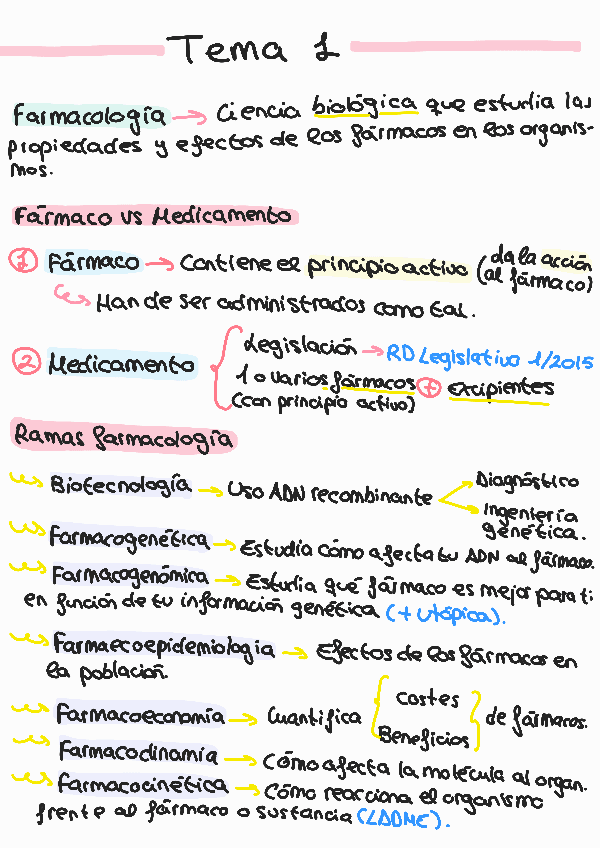 Tema 1
Farmacología → Ciencia biológica que estudia las
propiedades y efectos de los fármacos en los organis-
mos.
Fármaco vs Medicamento
① Fármaco → Contiene el principio activo (da la acción
al fármaco)
↪ Han de ser administrados como tal.
② Medicamento { Legislación → RD Legislativo 1/2015
1 o varios fármacos ⊕ excipientes
(con principio activo)
Ramas farmacología
Biotecnología → Uso ADN recombinante
Diagnóstico
Ingeniería
genética.
Farmacogenética → Estudia cómo afecta tu ADN al fármaco.
Farmacogenómica → Estudia qué fármaco es mejor para ti
en función de tu información genética (+ utópica).
Farmaecoepidemiologia → Efectos de los fármacos en
la población.
Farmacoeconomía → Cuantifica { Costes
Beneficios } de fármacos.
Farmacodinamía → Cómo afecta la molécula al organ.
Farmacocinética → Cómo reacciona el organismo
frente al fármaco o sustancia (LADME).